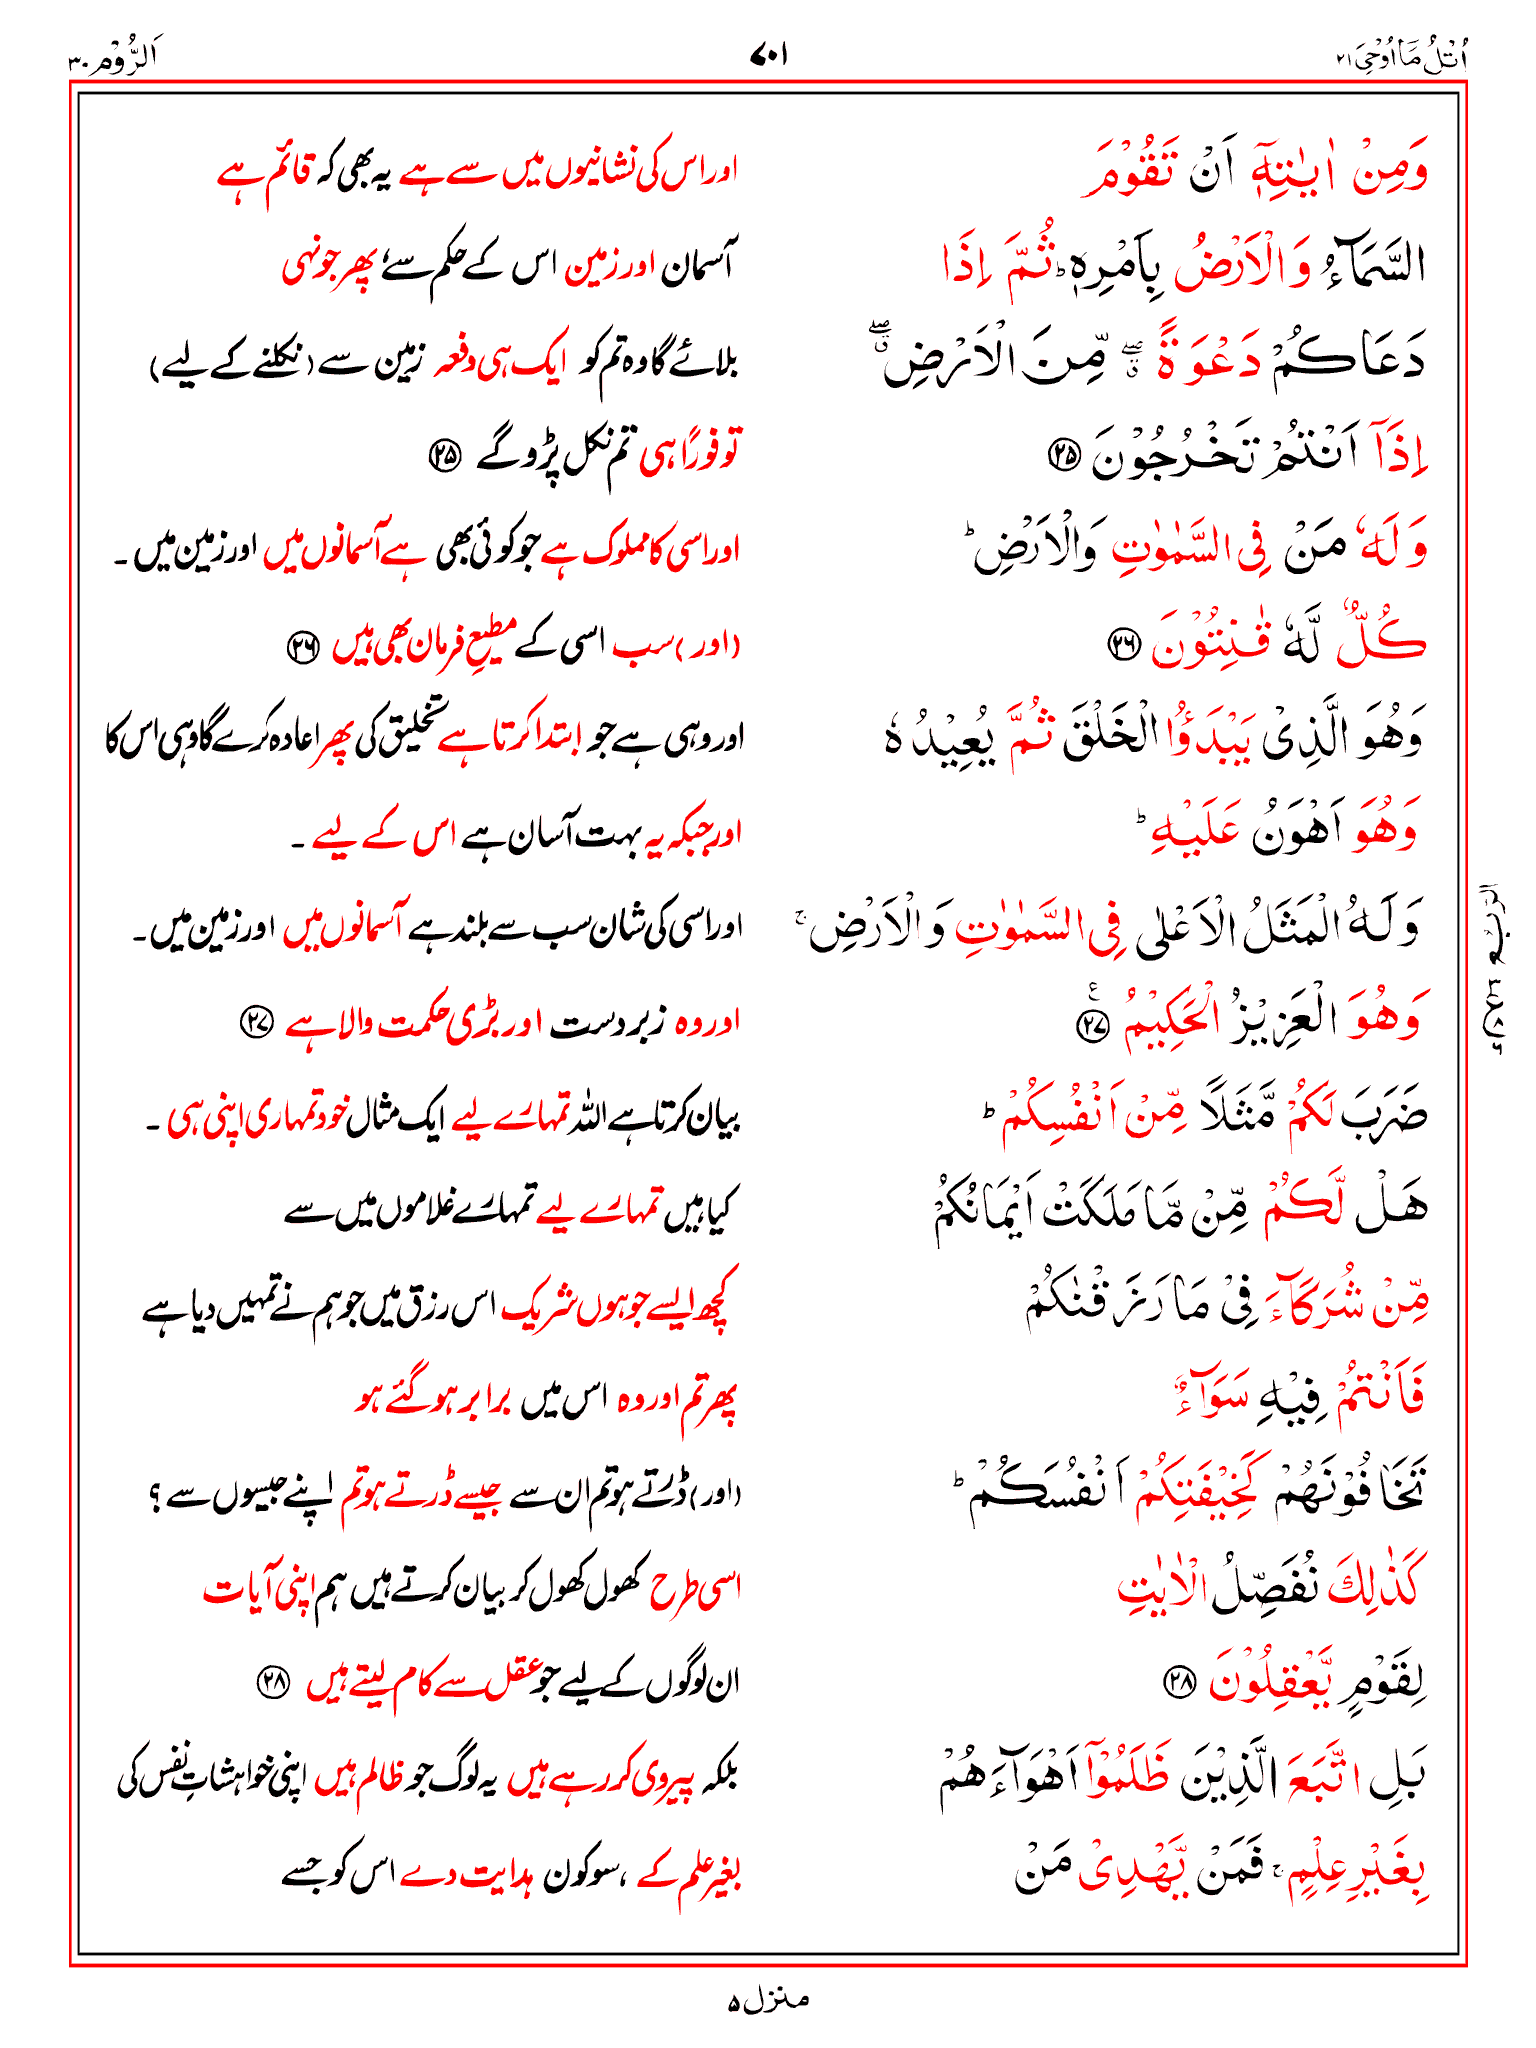 اُتْلُ مَاۤ اُوْحِیَ ۲۱
۷۰۱
اَلرُّوْم ۳۰
وَمِنْ اٰیٰتِهٖۤ اَنْ تَقُوْمَ
اور اس کی نشانیوں میں سے ہے یہ بھی کہ قائم ہے
السَّمَآءُ وَالْاَرْضُ بِاَمْرِهٖ ؕ ثُمَّ اِذَا
آسمان اور زمین اس کے حکم سے، پھر جونہی
دَعَاكُمْ دَعْوَةً ۖۗ مِّنَ الْاَرْضِ ۖۗ
بلائے گا وہ تم کو ایک ہی دفعہ زمین سے (نکلنے کے لیے)
اِذَاۤ اَنْتُمْ تَخْرُجُوْنَ ۲۵
تو فورًا ہی تم نکل پڑو گے ۲۵
وَلَهٗ مَنْ فِی السَّمٰوٰتِ وَالْاَرْضِ ؕ
اور اسی کا مملوک ہے جو کوئی بھی ہے آسمانوں میں اور زمین میں ۔
كُلٌّ لَّهٗ قٰنِتُوْنَ ۲۶
(اور) سب اسی کے مطیعِ فرمان بھی ہیں ۲۶
وَهُوَ الَّذِیْ یَبْدَؤُا الْخَلْقَ ثُمَّ یُعِیْدُهٗ
اور وہی ہے جو ابتدا کرتا ہے تخلیق کی پھر اعادہ کرے گا وہی اس کا
وَهُوَ اَهْوَنُ عَلَیْهِ ؕ
اور جبکہ یہ بہت آسان ہے اس کے لیے ۔
وَلَهُ الْمَثَلُ الْاَعْلٰی فِی السَّمٰوٰتِ وَالْاَرْضِ ۚ
اور اسی کی شان سب سے بلند ہے آسمانوں میں اور زمین میں ۔
وَهُوَ الْعَزِیْزُ الْحَكِیْمُ ۲۷ ع
اور وہ زبردست اور بڑی حکمت والا ہے ۲۷
ضَرَبَ لَكُمْ مَّثَلًا مِّنْ اَنْفُسِكُمْ ؕ
بیان کرتا ہے اللہ تمہارے لیے ایک مثال خود تمہاری اپنی ہی ۔
هَلْ لَّكُمْ مِّنْ مَّا مَلَكَتْ اَیْمَانُكُمْ
کیا ہیں تمہارے لیے تمہارے غلاموں میں سے
مِّنْ شُرَكَآءَ فِیْ مَا رَزَقْنٰكُمْ
کچھ ایسے جو ہوں شریک اس رزق میں جو ہم نے تمہیں دیا ہے
فَاَنْتُمْ فِیْهِ سَوَآءٌ
پھر تم اور وہ اس میں برابر ہو گئے ہو
تَخَافُوْنَهُمْ كَخِیْفَتِكُمْ اَنْفُسَكُمْ ؕ
(اور) ڈرتے ہو تم ان سے جیسے ڈرتے ہو تم اپنے جیسوں سے ؟
كَذٰلِكَ نُفَصِّلُ الْاٰیٰتِ
اسی طرح کھول کھول کر بیان کرتے ہیں ہم اپنی آیات
لِقَوْمٍ یَّعْقِلُوْنَ ۲۸
ان لوگوں کے لیے جو عقل سے کام لیتے ہیں ۲۸
بَلِ اتَّبَعَ الَّذِیْنَ ظَلَمُوْۤا اَهْوَآءَهُمْ
بلکہ پیروی کر رہے ہیں یہ لوگ جو ظالم ہیں اپنی خواہشاتِ نفس کی
بِغَیْرِ عِلْمٍ ۚ فَمَنْ یَّهْدِیْ مَنْ
بغیر علم کے ، سو کون ہدایت دے اس کو جسے
الربع
منزل ۵